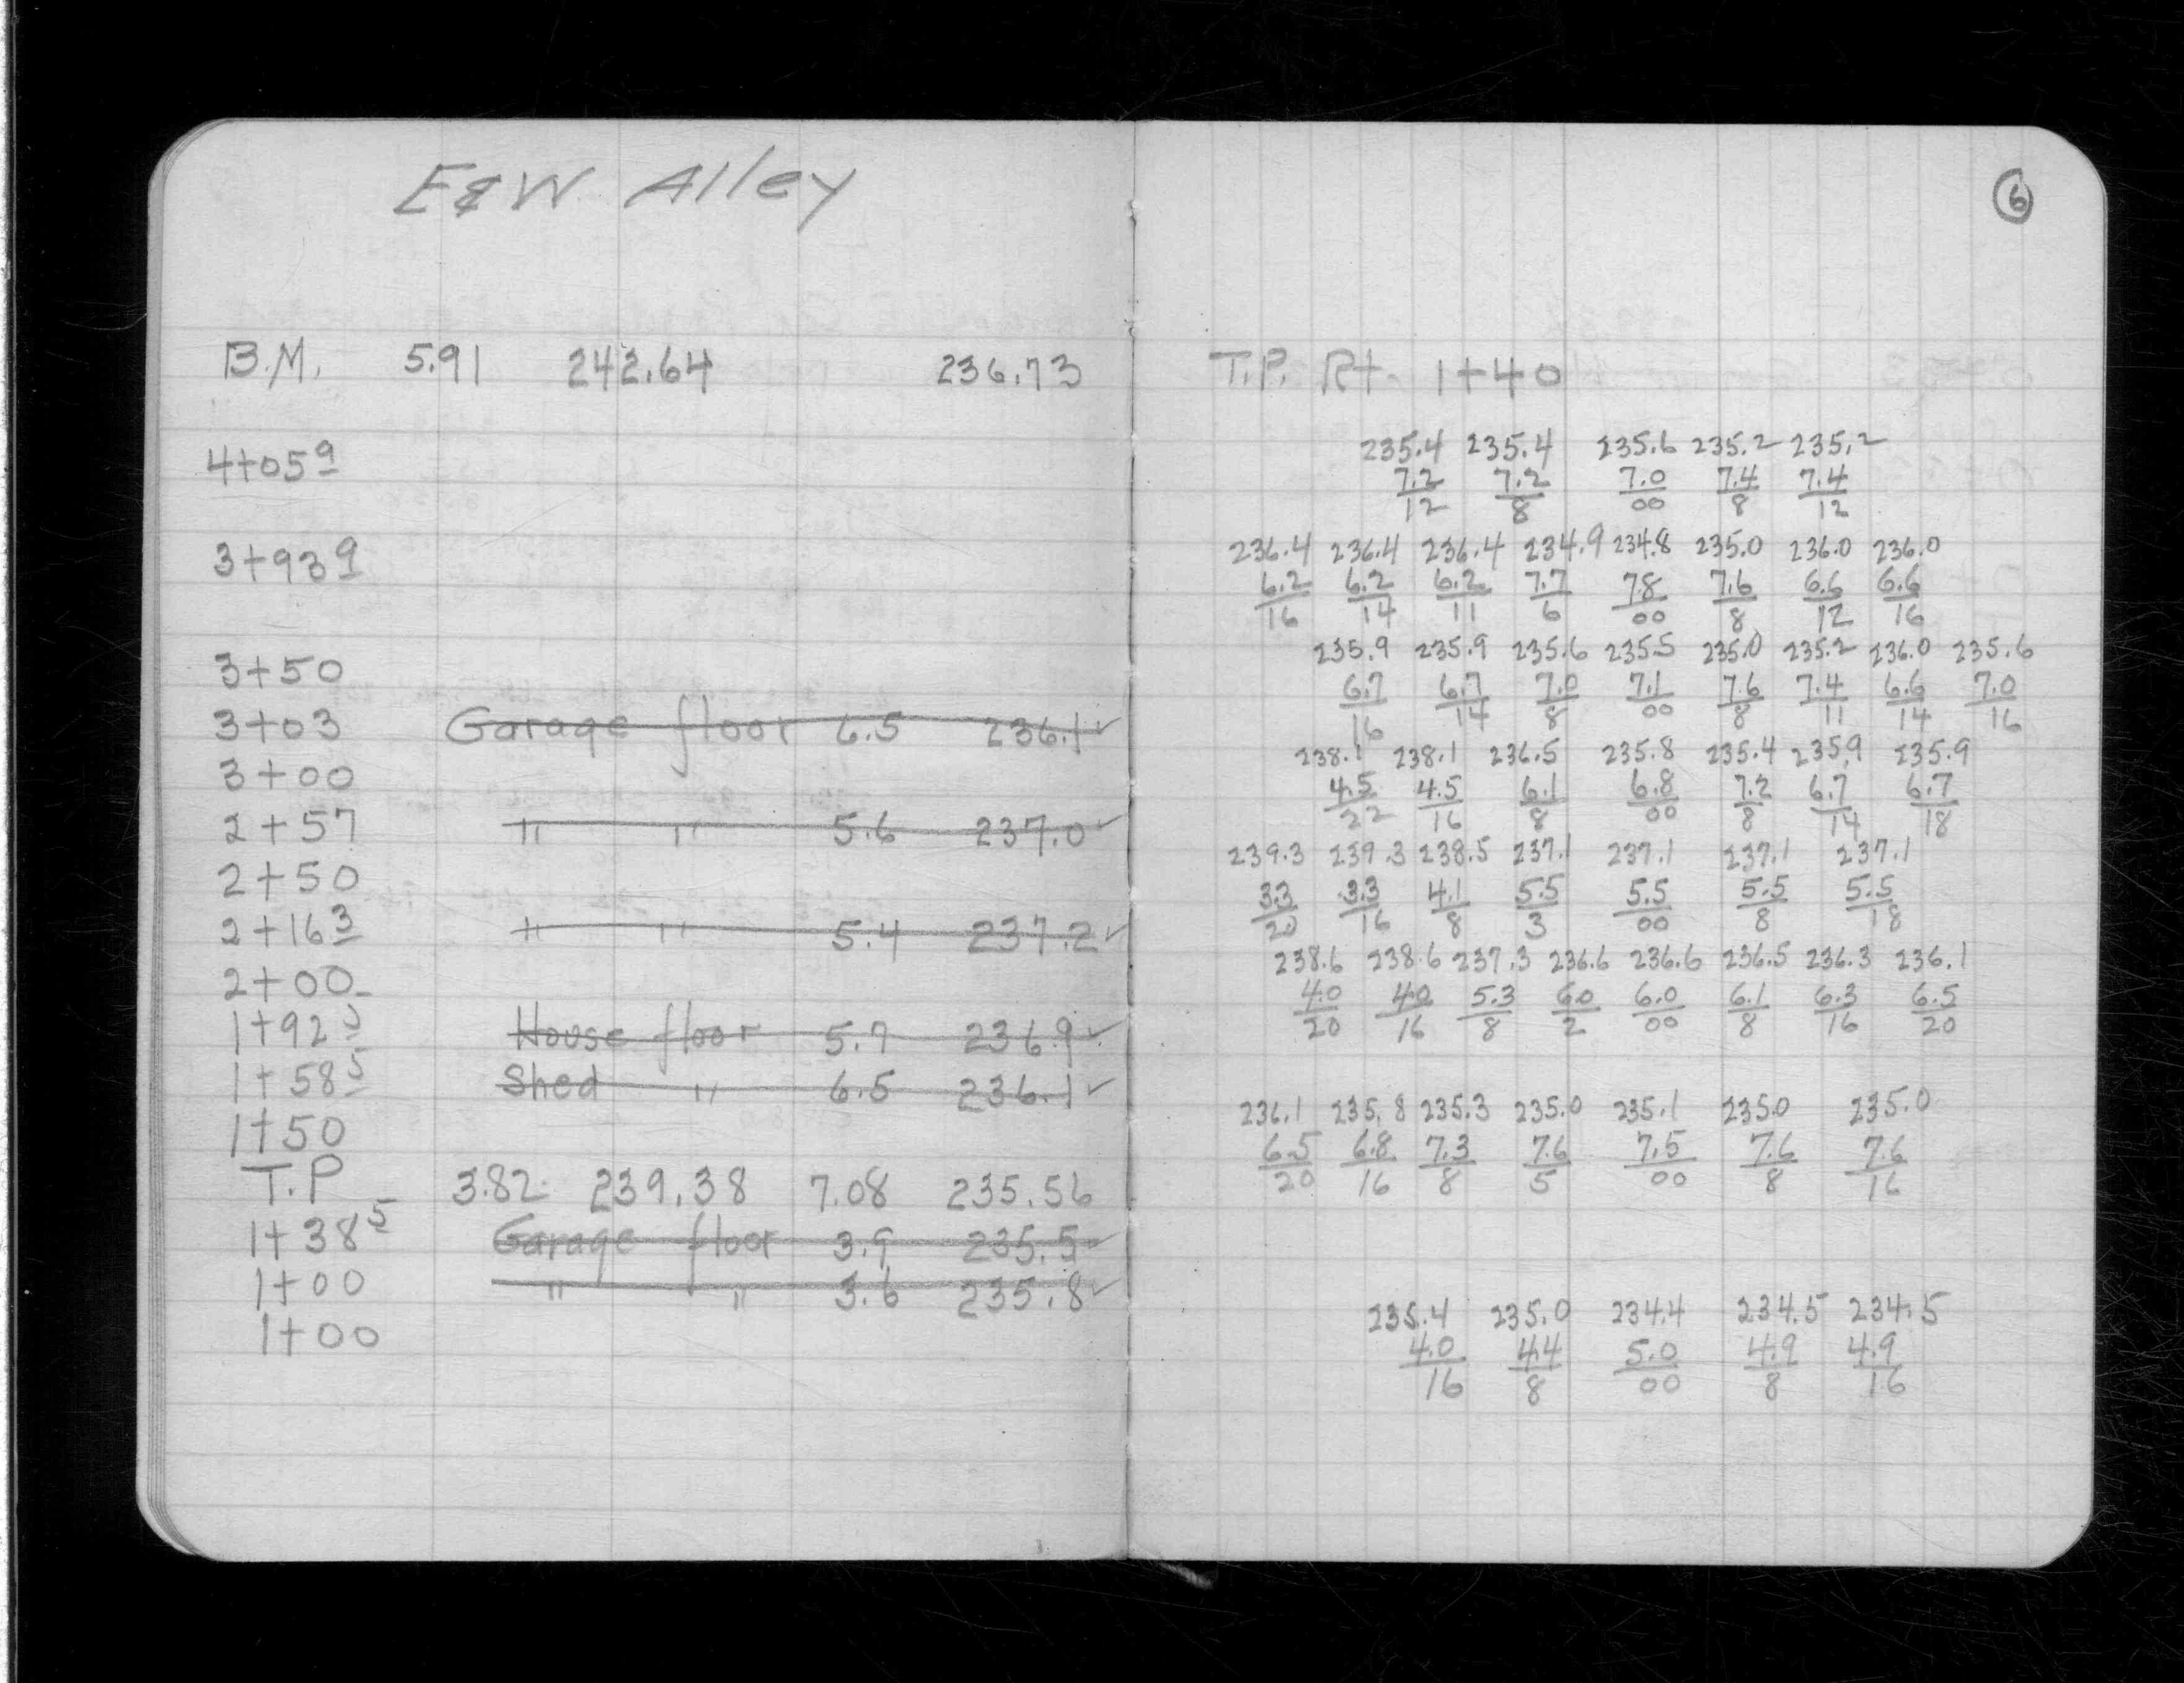 E&W Alley
B.M. 5.91 242.64 236.73
4+05 9
3+93 9
3+50
3+03 Garage floor 6.5 236.1 ✓
3+00
2+57 " " 5.6 237.0 ✓
2+50
2+16 3 " " 5.4 237.2 ✓
2+00
1+92 5 House floor 5.7 236.9 ✓
1+58 5 Shed " 6.5 236.1 ✓
1+50
T.P 3.82 239.38 7.08 235.56
1+38 5 Garage floor 3.9 235.5
1+00 " " 3.6 235.8 ✓
1+00
6
T.P. Rt. 1+40
235.4 235.4 235.6 235.2 235.2
7.2 7.2 7.0 7.4 7.4
12 8 00 8 12
236.4 236.4 236.4 234.9 234.8 235.0 236.0 236.0
6.2 6.2 6.2 7.7 7.8 7.6 6.6 6.6
16 14 11 6 00 8 12 16
235.9 235.9 235.6 235.5 235.0 235.2 236.0 235.6
6.7 6.7 7.0 7.1 7.6 7.4 6.6 7.0
16 14 8 00 8 11 14 16
238.1 238.1 236.5 235.8 235.4 235.9 235.9
4.5 4.5 6.1 6.8 7.2 6.7 6.7
22 16 8 00 8 14 18
239.3 239.3 238.5 237.1 237.1 237.1 237.1
3.3 3.3 4.1 5.5 5.5 5.5 5.5
20 16 8 3 00 8 18
238.6 238.6 237.3 236.6 236.6 236.5 236.3 236.1
4.0 4.0 5.3 6.0 6.0 6.1 6.3 6.5
20 16 8 2 00 8 16 20
236.1 235.8 235.3 235.0 235.1 235.0 235.0
6.5 6.8 7.3 7.6 7.5 7.6 7.6
20 16 8 5 00 8 16
235.4 235.0 234.4 234.5 234.5
4.0 4.4 5.0 4.9 4.9
16 8 00 8 16